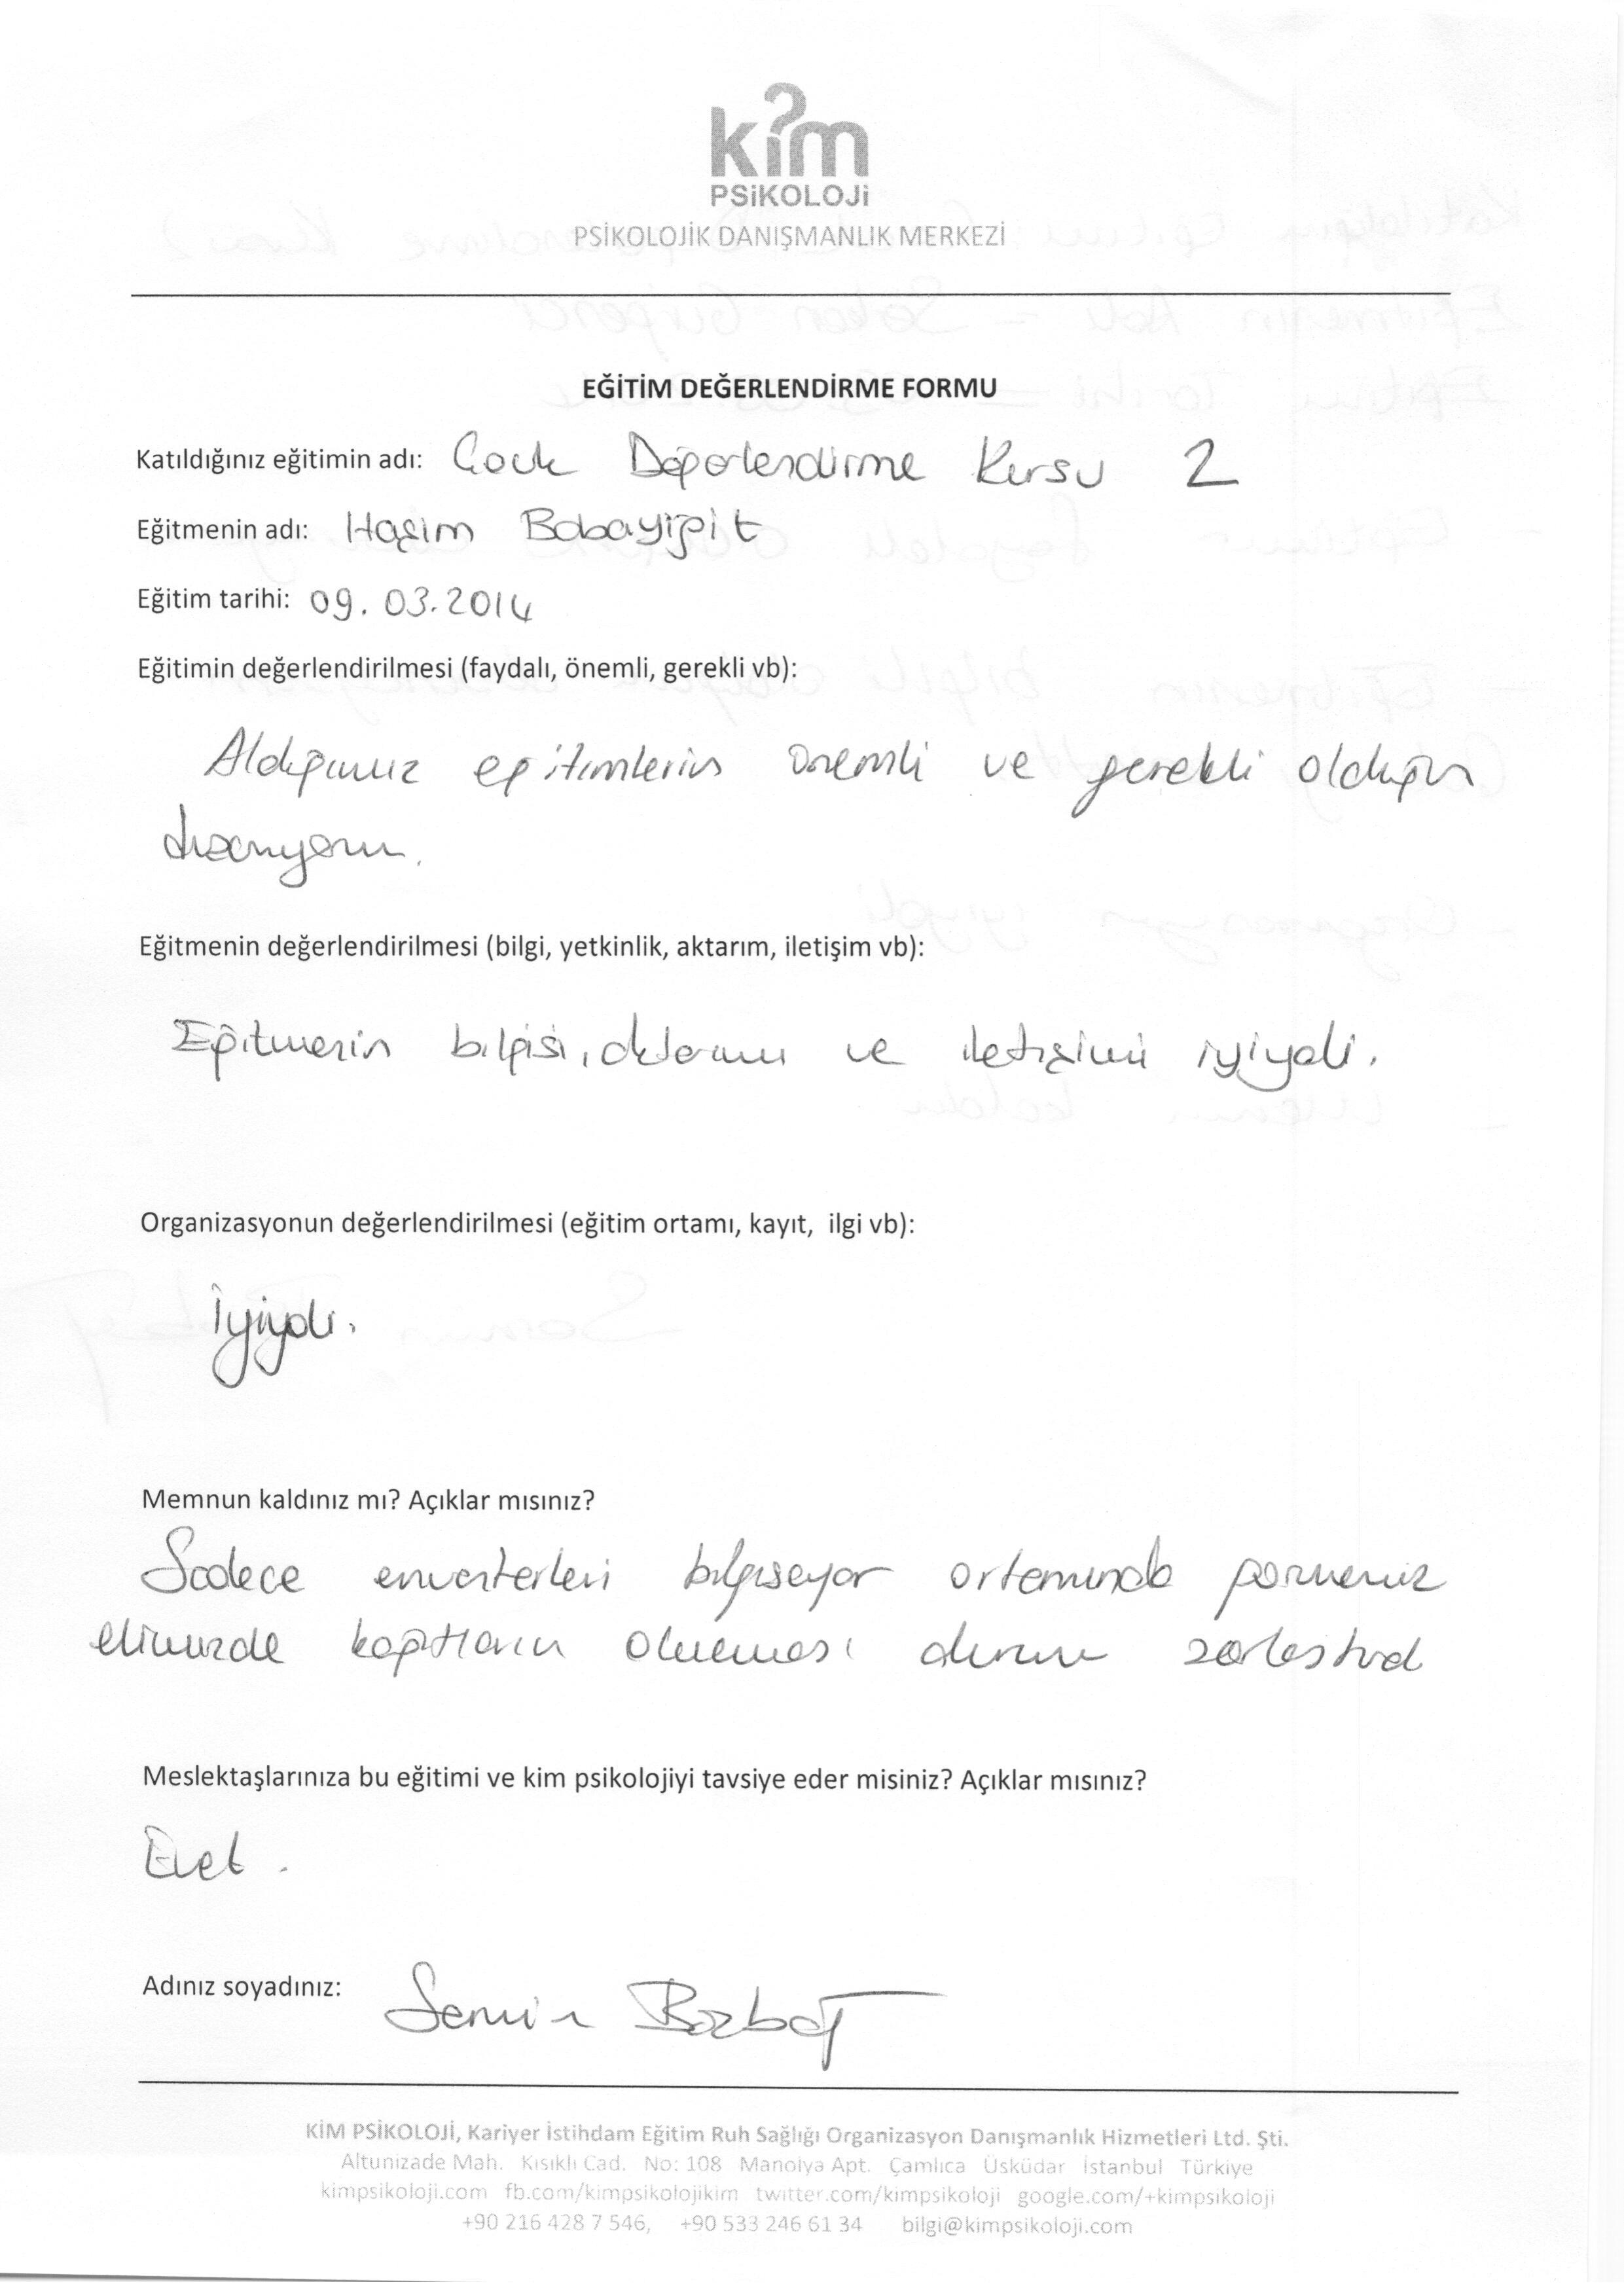 kim
PSİKOLOJİ
PSİKOLOJİK DANIŞMANLIK MERKEZİ
EĞİTİM DEĞERLENDİRME FORMU
Katıldığınız eğitimin adı: Çocuk Değerlendirme Kursu 2
Eğitmenin adı: Haşim Babayiğit
Eğitim tarihi: 09.03.2014
Eğitimin değerlendirilmesi (faydalı, önemli, gerekli vb):
Aldığımız eğitimlerin önemli ve gerekli olduğun
düşünüyorum.
Eğitmenin değerlendirilmesi (bilgi, yetkinlik, aktarım, iletişim vb):
Eğitmenin bilgisi, aktarımı ve iletişimi iyiydi.
Organizasyonun değerlendirilmesi (eğitim ortamı, kayıt, ilgi vb):
İyiydi.
Memnun kaldınız mı? Açıklar mısınız?
Sadece envanterleri bilgisayar ortamında görmemiz
elimizde kağıtların olmaması durumu zorlaştırd
Meslektaşlarınıza bu eğitimi ve kim psikolojiyi tavsiye eder misiniz? Açıklar mısınız?
Evet.
Adınız soyadınız:
KİM PSİKOLOJİ, Kariyer İstihdam Eğitim Ruh Sağlığı Organizasyon Danışmanlık Hizmetleri Ltd. Şti.
Altunizade Mah. Kısıklı Cad. No: 108 Manolya Apt. Çamlıca Üsküdar İstanbul Türkiye
kimpsikoloji.com fb.com/kimpsikolojikim twitter.com/kimpsikoloji google.com/+kimpsikoloji
+90 216 428 7 546, +90 533 246 61 34 bilgi@kimpsikoloji.com